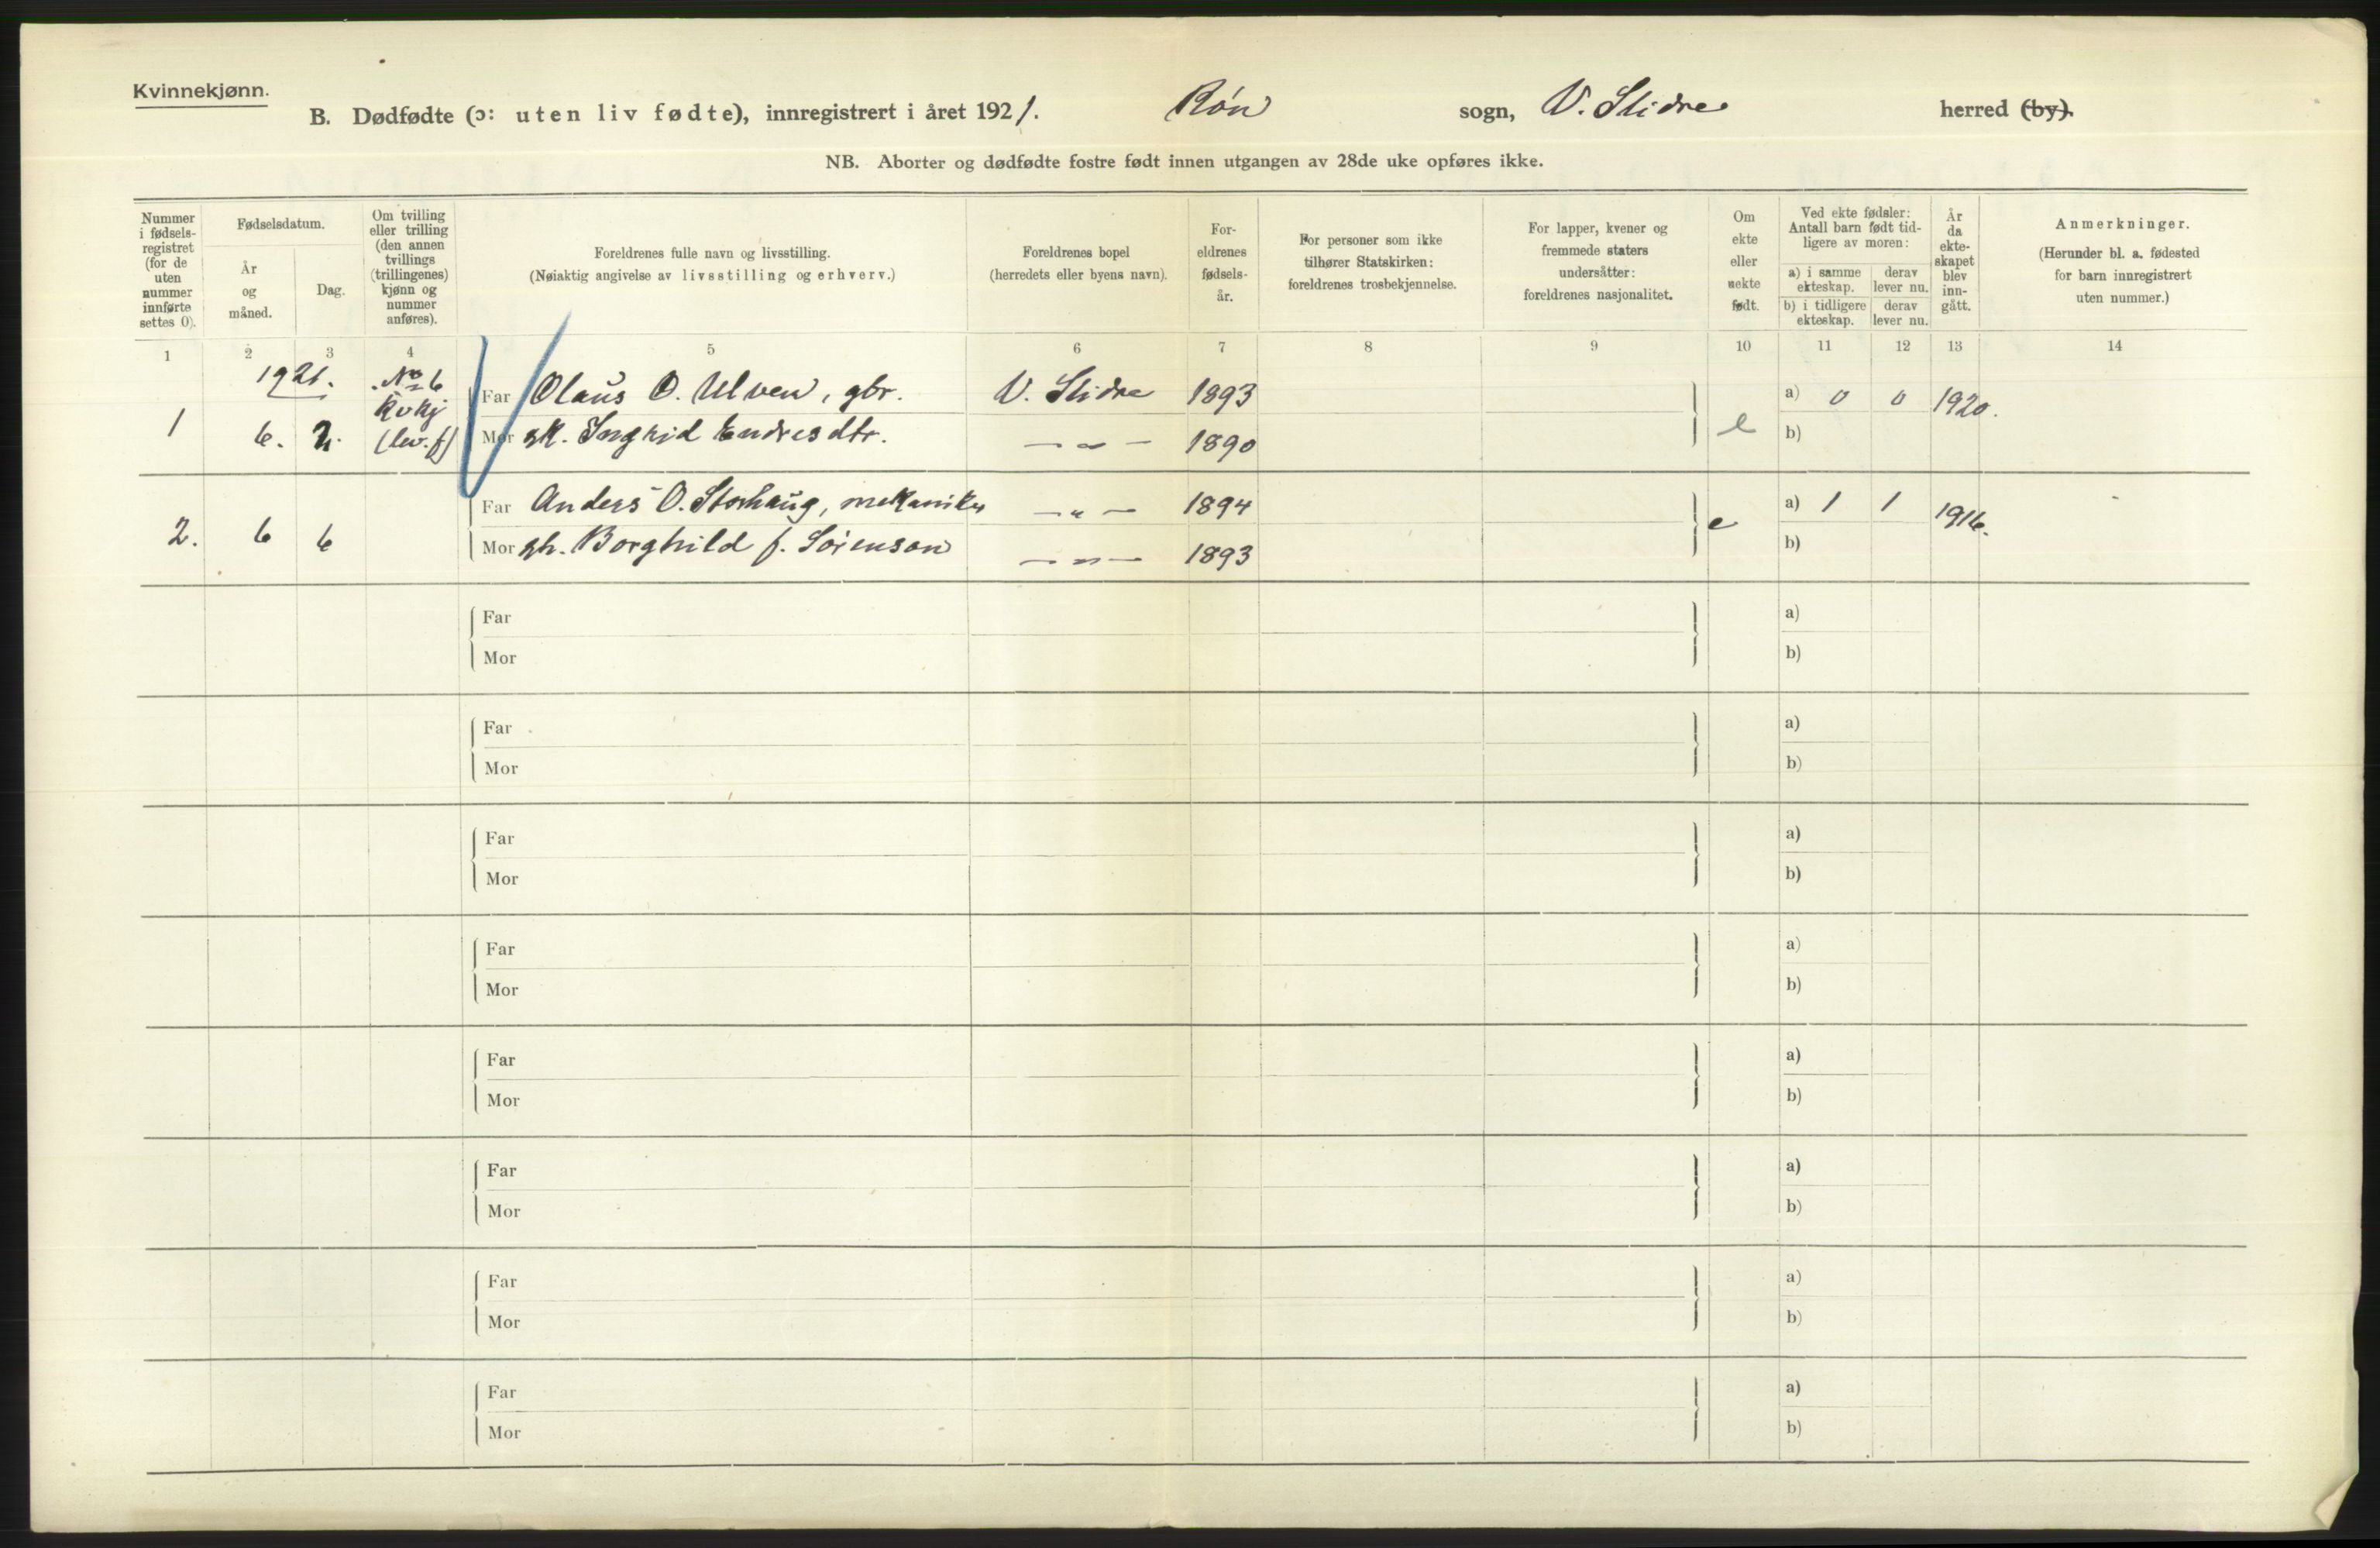 Kvinnekjønn.
B. Dødfødte (ɔ: uten liv fødte), innregistrert i året 1921. Røn sogn, V. Slidre herred (by).
NB. Aborter og dødfødte fostre født innen utgangen av 28de uke opføres ikke.
Nummer i fødsels-registret (for de uten nummer innførte settes 0).
Fødselsdatum.
År og måned.
Dag.
Om tvilling eller trilling (den annen tvillings (trillingenes) kjønn og nummer anføres).
Foreldrenes fulle navn og livsstilling.
(Nøiaktig angivelse av livsstilling og erhverv.)
Foreldrenes bopel
(herredets eller byens navn).
For-eldrenes fødsels-år.
For personer som ikke tilhører Statskirken: foreldrenes trosbekjennelse.
For lapper, kvener og fremmede staters undersåtter: foreldrenes nasjonalitet.
Om ekte eller uekte født.
Ved ekte fødsler: Antall barn født tid-ligere av moren:
a) i samme ekteskap. derav lever nu.
b) i tidligere ekteskap. derav lever nu.
År da ekte-skapet blev inn-gått.
Anmerkninger.
(Herunder bl. a. fødested for barn innregistrert uten nummer.)
1 2 3 4 5 6 7 8 9 10 11 12 13 14
1921. No 6
Kvkj
(lev. f)
1 6. 2. Far Olaus O. Ulven, gbr. V. Slidre 1893 e a) 0 0 1920.
Mor gk. Ingrid Endresdtr. — „ — 1890 b)
2. 6 6 Far Anders O. Storhaug, mekaniker — „ — 1894 e a) 1 1 1916.
Mor gh. Borghild f. Sørenson — „ — 1893 b)
Far a)
Mor b)
Far a)
Mor b)
Far a)
Mor b)
Far a)
Mor b)
Far a)
Mor b)
Far a)
Mor b)
Far a)
Mor b)
Far a)
Mor b)